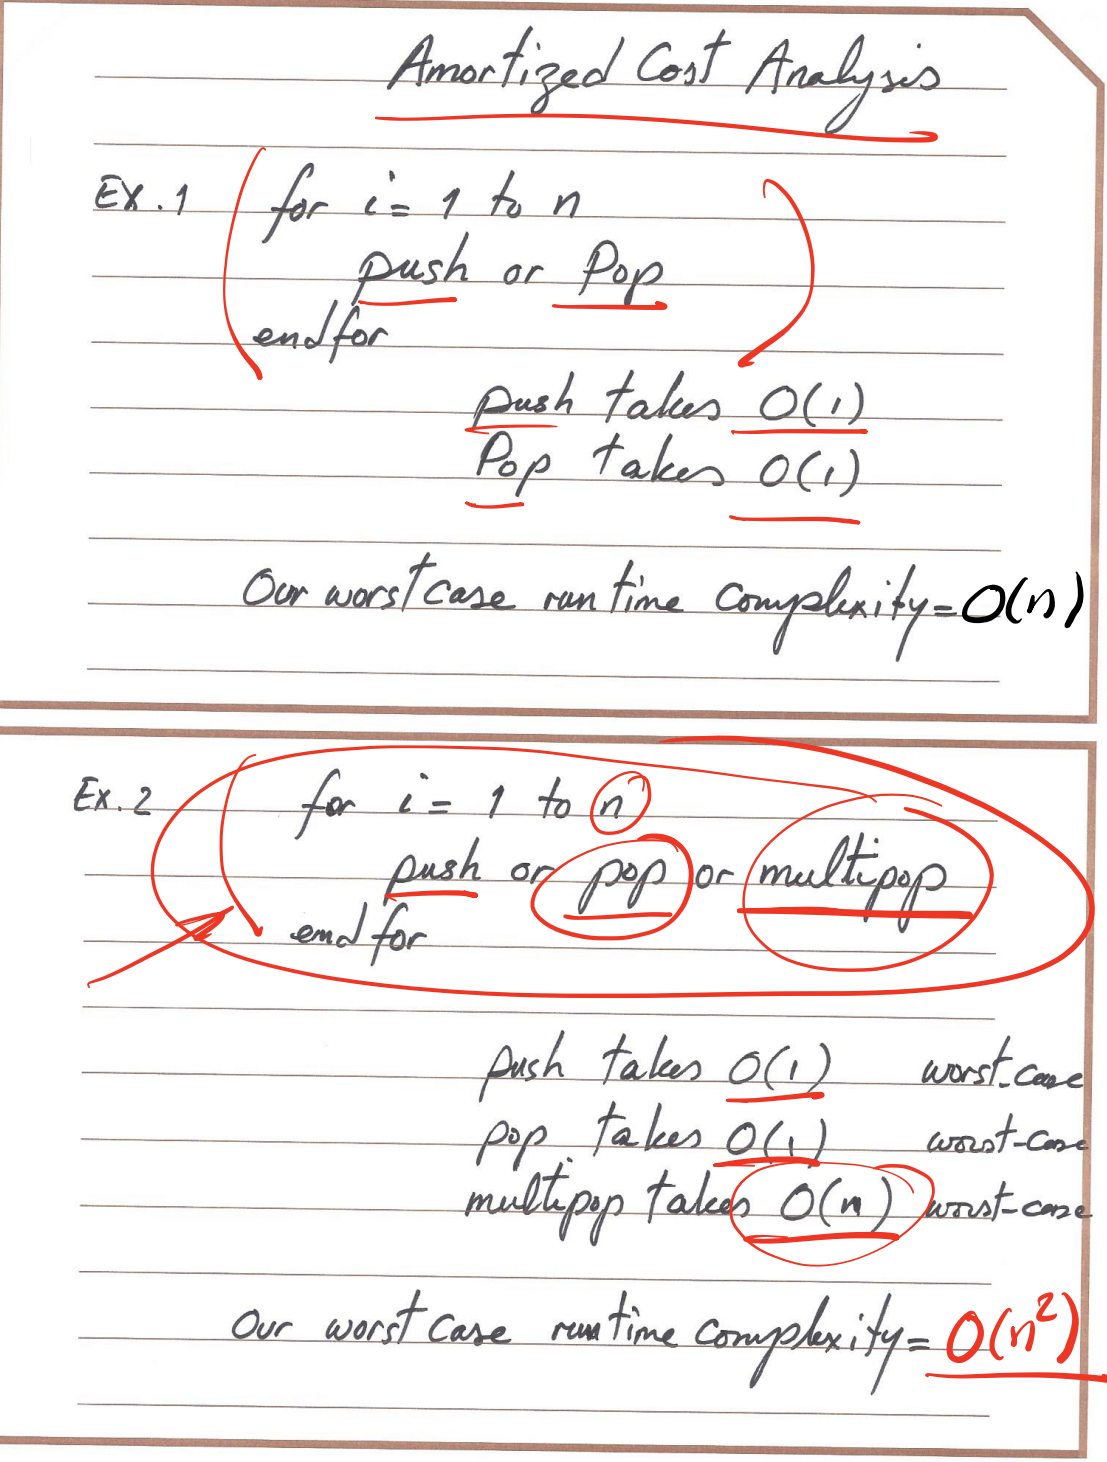 Amortized Cost Analysis
Ex.1 for i = 1 to n
push or Pop
endfor
push takes O(1)
Pop takes O(1)
Our worst case run time complexity = O(n)
Ex.2 for i = 1 to n
push or pop or multipop
endfor
push takes O(1) worst-case
pop takes O(1) worst-case
multipop takes O(n) worst-case
Our worst case run time complexity = O(n²)